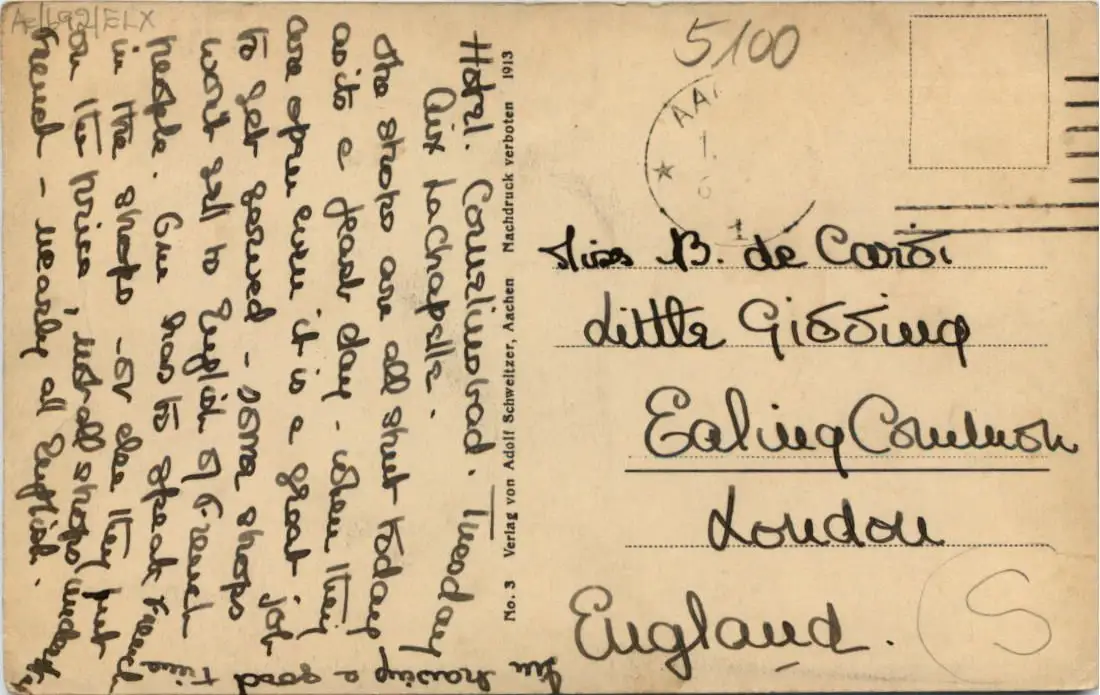 A-/692/ELX
5100
AA
Miss B. de Caroi
Little Gissing
Ealing Common
London
England.
S
No. 3 Verlag von Adolf Schweitzer, Aachen Nachdruck verboten 1913
Hotel. Tuesday
Aix LaChapelle.
The shops are all shut today
as its a feast day - when they
are open even it is a great job
to get served - some shops
wont sell to English or French
people. One has to speak French
in the shops - or else they put
on the price, not all shops understand
French - nearly all English.
I'm having a good time